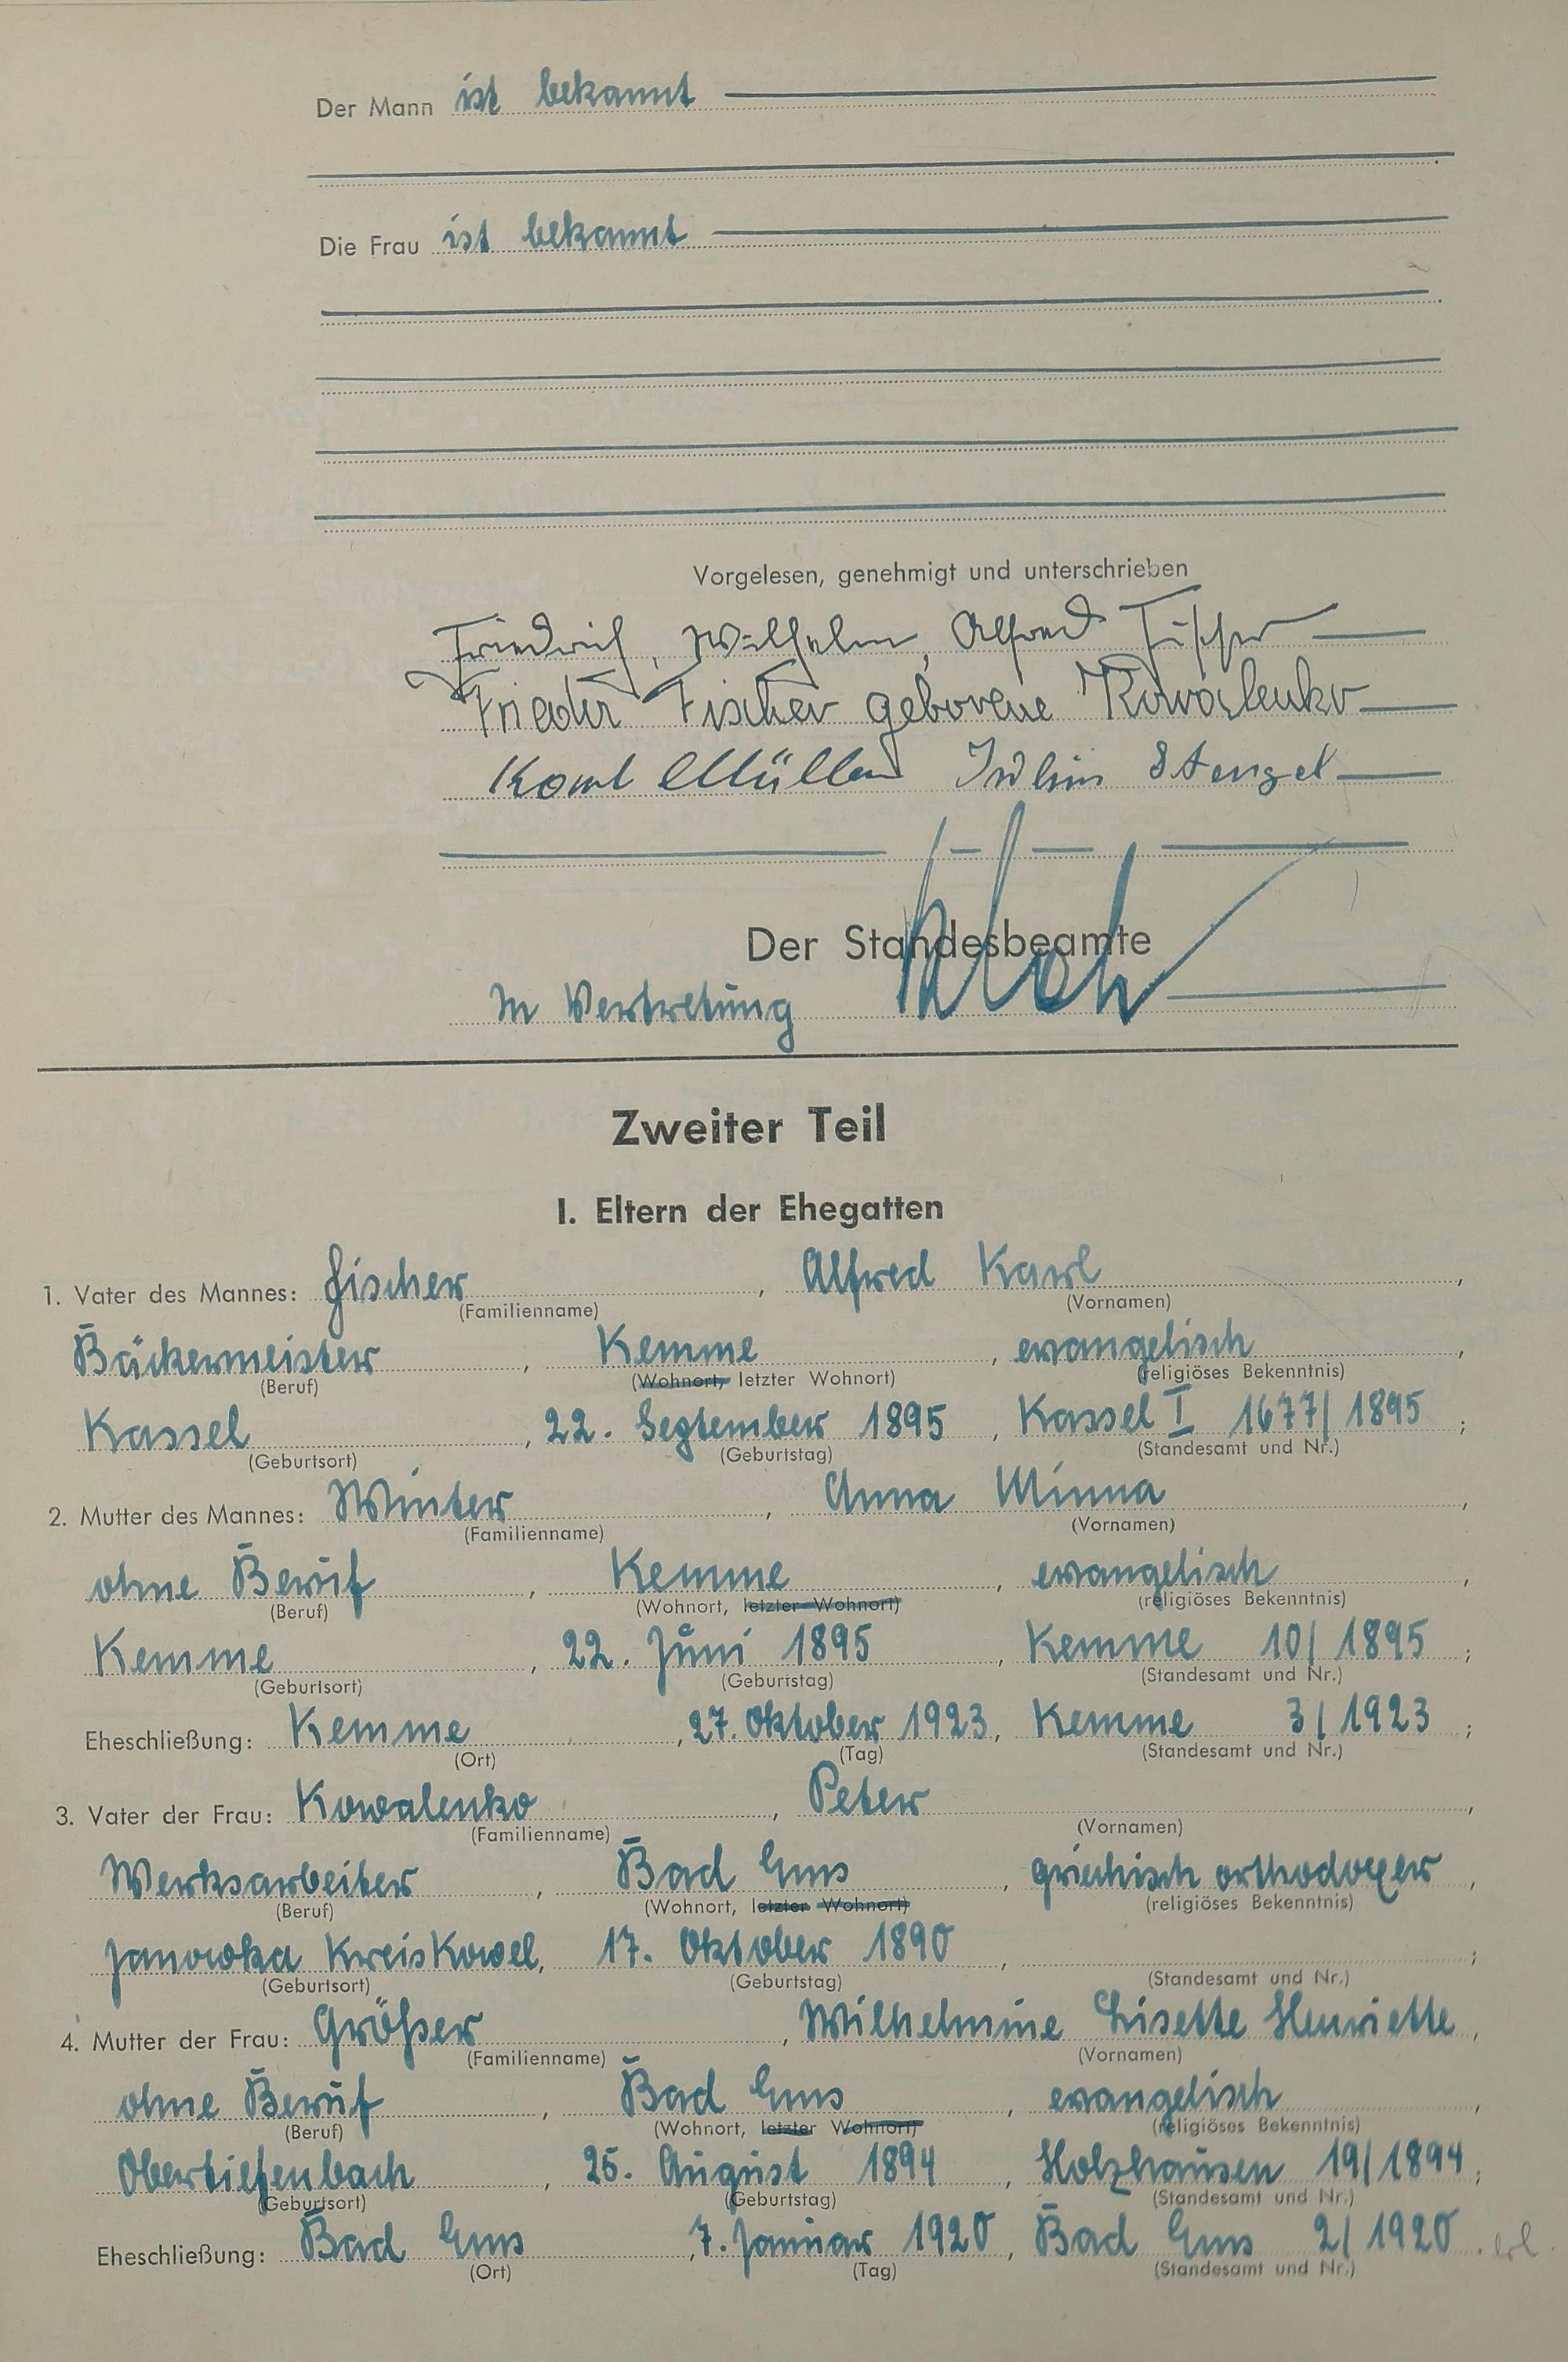 Der Mann ist bekannt
Die Frau ist bekannt
Vorgelesen, genehmigt und unterschrieben
Friedrich, Wilhelm, Alfred Fischer
Fischer geborene Kowalenko
Karl Müller Stengel
Der Standesbeamte
In Vertretung
Zweiter Teil
I. Eltern der Ehegatten
1. Vater des Mannes: Fischer, Alfred Karl,
(Familienname) (Vornamen)
Bäckermeister, Kemme, evangelisch,
(Beruf) (Wohnort, letzter Wohnort) (religiöses Bekenntnis)
Kassel, 22. September 1895, Kassel I 1677/1895;
(Geburtsort) (Geburtstag) (Standesamt und Nr.)
2. Mutter des Mannes: Winter, Anna Minna,
(Familienname) (Vornamen)
ohne Beruf, Kemme, evangelisch,
(Beruf) (Wohnort, letzter Wohnort) (religiöses Bekenntnis)
Kemme, 22. Juni 1895, Kemme 10/1895;
(Geburtsort) (Geburtstag) (Standesamt und Nr.)
Eheschließung: Kemme, 27. Oktober 1923, Kemme 3/1923;
(Ort) (Tag) (Standesamt und Nr.)
3. Vater der Frau: Kowalenko, Peter,
(Familienname) (Vornamen)
Werksarbeiter, Bad Ems, griechisch orthodoxer,
(Beruf) (Wohnort, letzter Wohnort) (religiöses Bekenntnis)
Janowka Kreis Kowel, 17. Oktober 1890, ;
(Geburtsort) (Geburtstag) (Standesamt und Nr.)
4. Mutter der Frau: Größer, Wilhelmine Lisette Henriette,
(Familienname) (Vornamen)
ohne Beruf, Bad Ems, evangelisch,
(Beruf) (Wohnort, letzter Wohnort) (religiöses Bekenntnis)
Obertiefenbach, 25. August 1894, Holzhausen 19/1894;
(Geburtsort) (Geburtstag) (Standesamt und Nr.)
Eheschließung: Bad Ems, 7. Januar 1920, Bad Ems 2/1920. erl.
(Ort) (Tag) (Standesamt und Nr.)